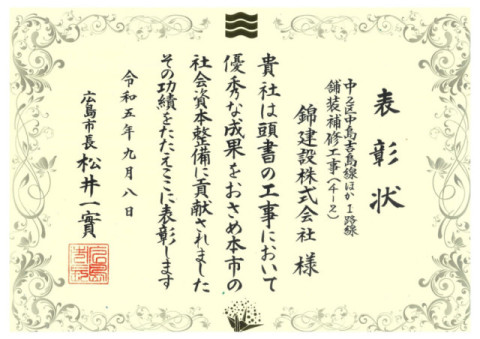 表彰状
中2区中島吉島線ほか1路線
舗装補修工事(4-2)
錦建設株式会社 様
貴社は頭書の工事において
優秀な成果をおさめ本市の
社会資本整備に貢献されました
その功績をたたえここに表彰します
令和五年九月八日
広島市長 松井一實